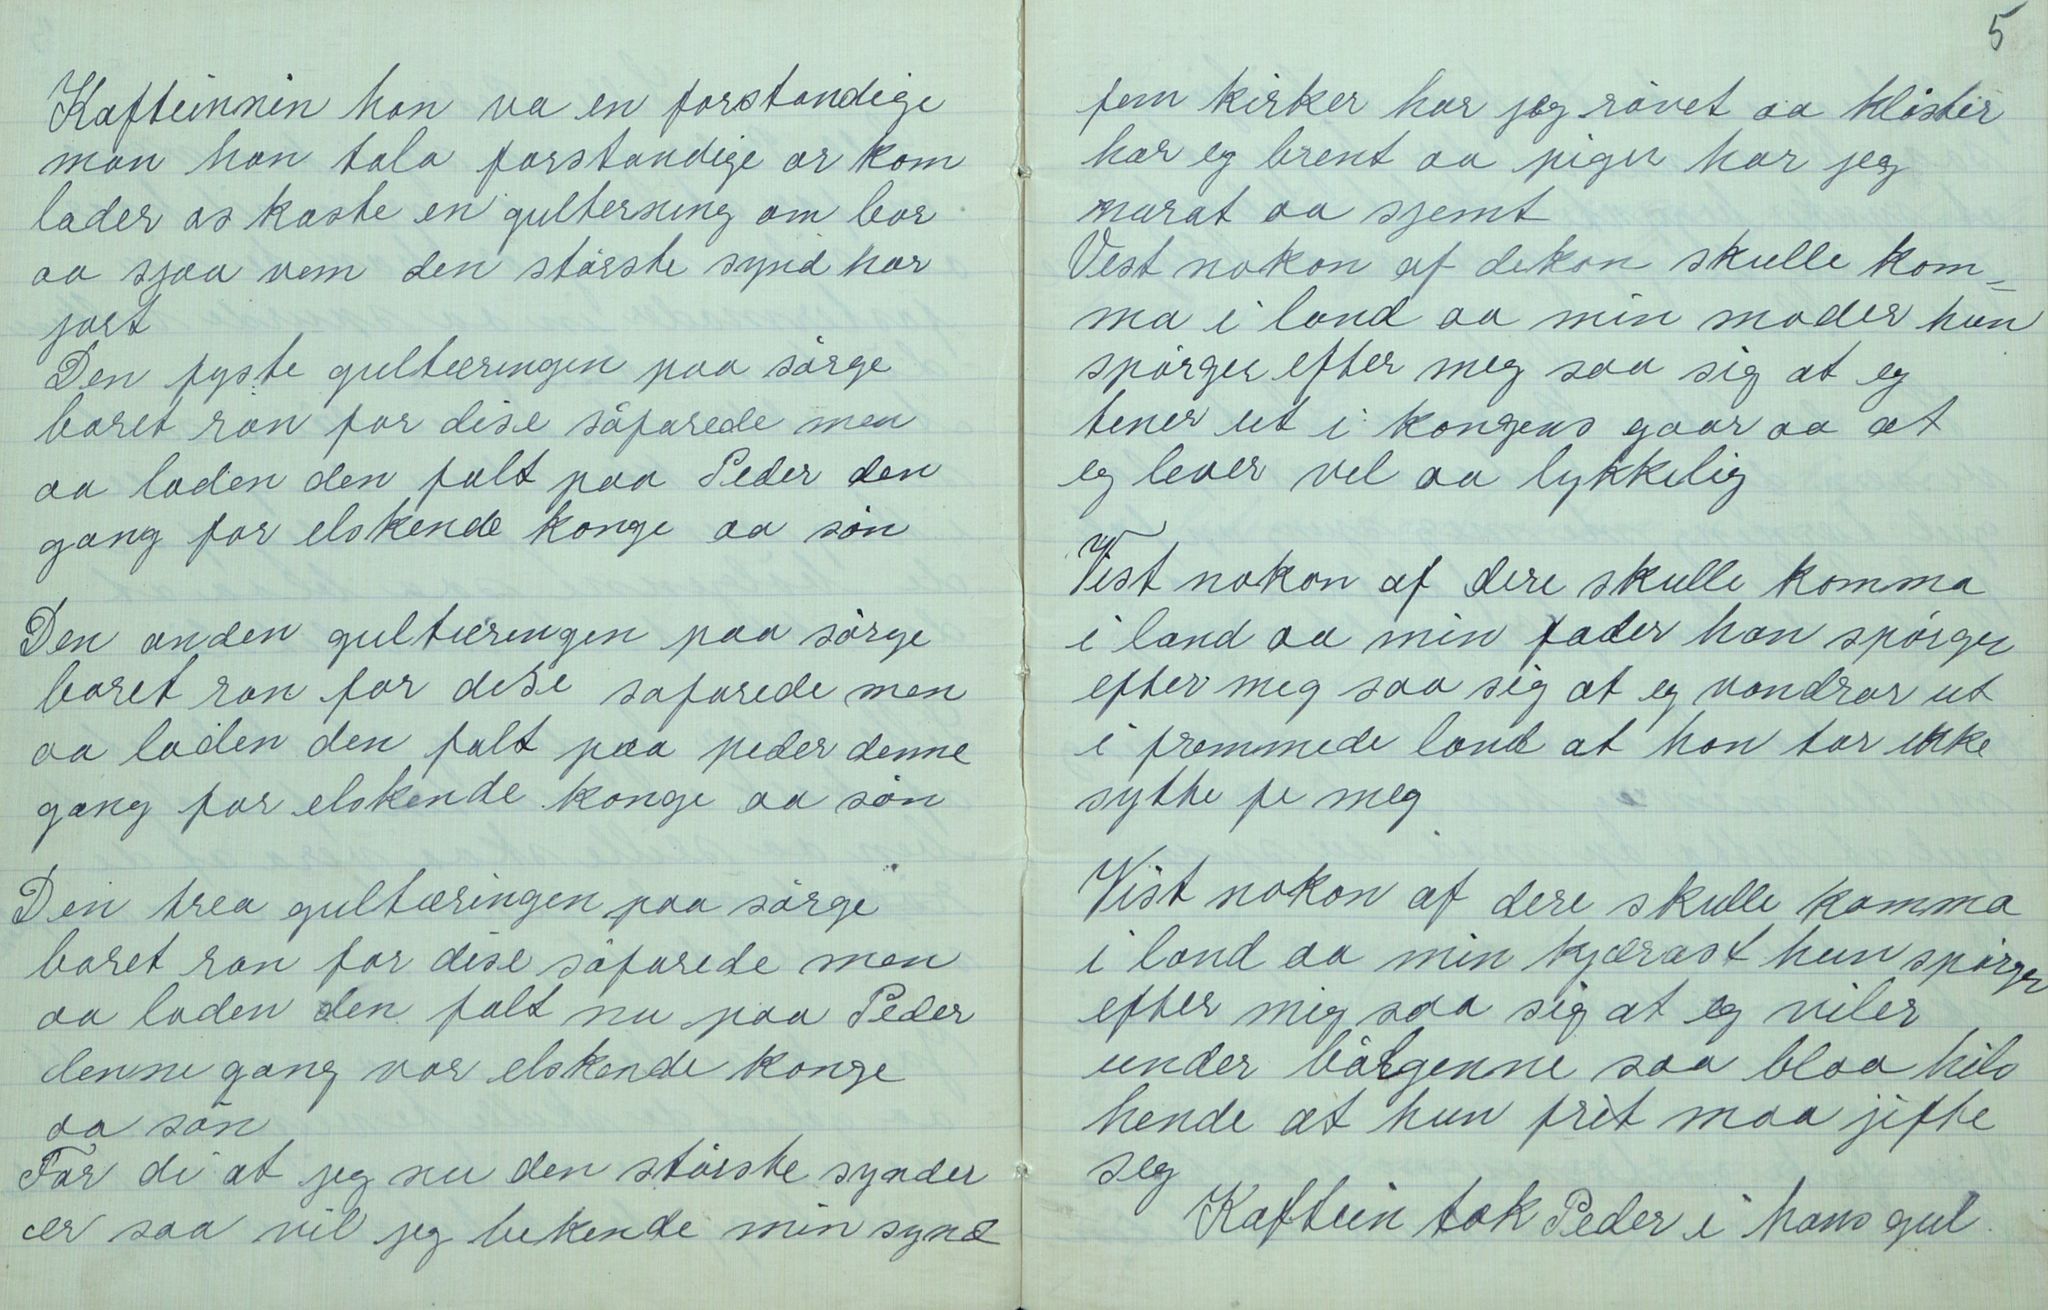 Kafteinnin han va en forstandige
man han tala forstandige or kom
lader os kaste en gulterning om bor
aa sjaa vem den störste synd har
jort
Den fyste gultæringen paa sörge
boret ran for dise söfarede men
aa loden den falt paa Peder den
gang for elskende konge aa sön
Den anden gultæringen paa sörge
boret ran for dise safarede men
aa loden den falt paa peder denne
gang for elskende konge aa sön
Den trea gultæringen paa sörge
boret ran for dise söfarede men
aa loden den falt nu paa Peder
denne gang vor elskende konge
aa sön
For di at jeg nu den störste synder
er saa vil jeg bekende min synd
5
fem kirker har jeg rövet aa klöster
har eg brent aa piger har jeg
narat aa sjemt
Vest nokon af dekon skulle kom=
ma i land aa min moder hun
spörger efter meg saa sig at eg
tener ut i kongens gaar aa at
eg lever vel aa lykkelig
Vist nokon af dere skulle komma
i land aa min fader han spörger
efter meg saa sig at eg vandrar ut
i fremmede land at han tar ikke
sytte fe meg
Vist nokon af dere skulle komma
i land aa min kjærast hun spörger
efter mig saa sig at eg viler
under bölgenne saa blaa hils
hende at hun frit maa jifte
seg
Kaftein tok Peder i hans gul